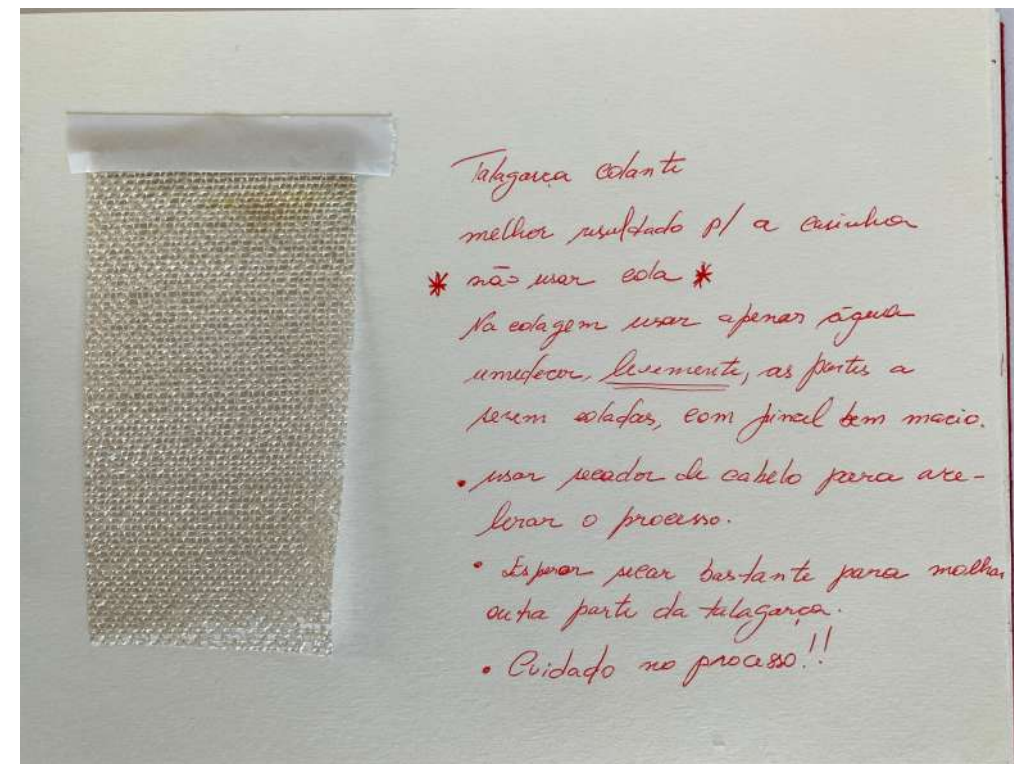 Talagarça colante
melhor resultado p/ a casinha
* não usar cola *
Na colagem usar apenas água
umedecer, levemente, as partes a
serem coladas, com pincel bem macio.
• usar secador de cabelo para ace-
lerar o processo.
• Esperar secar bastante para molhar
outra parte da talagarça.
• Cuidado no processo!!